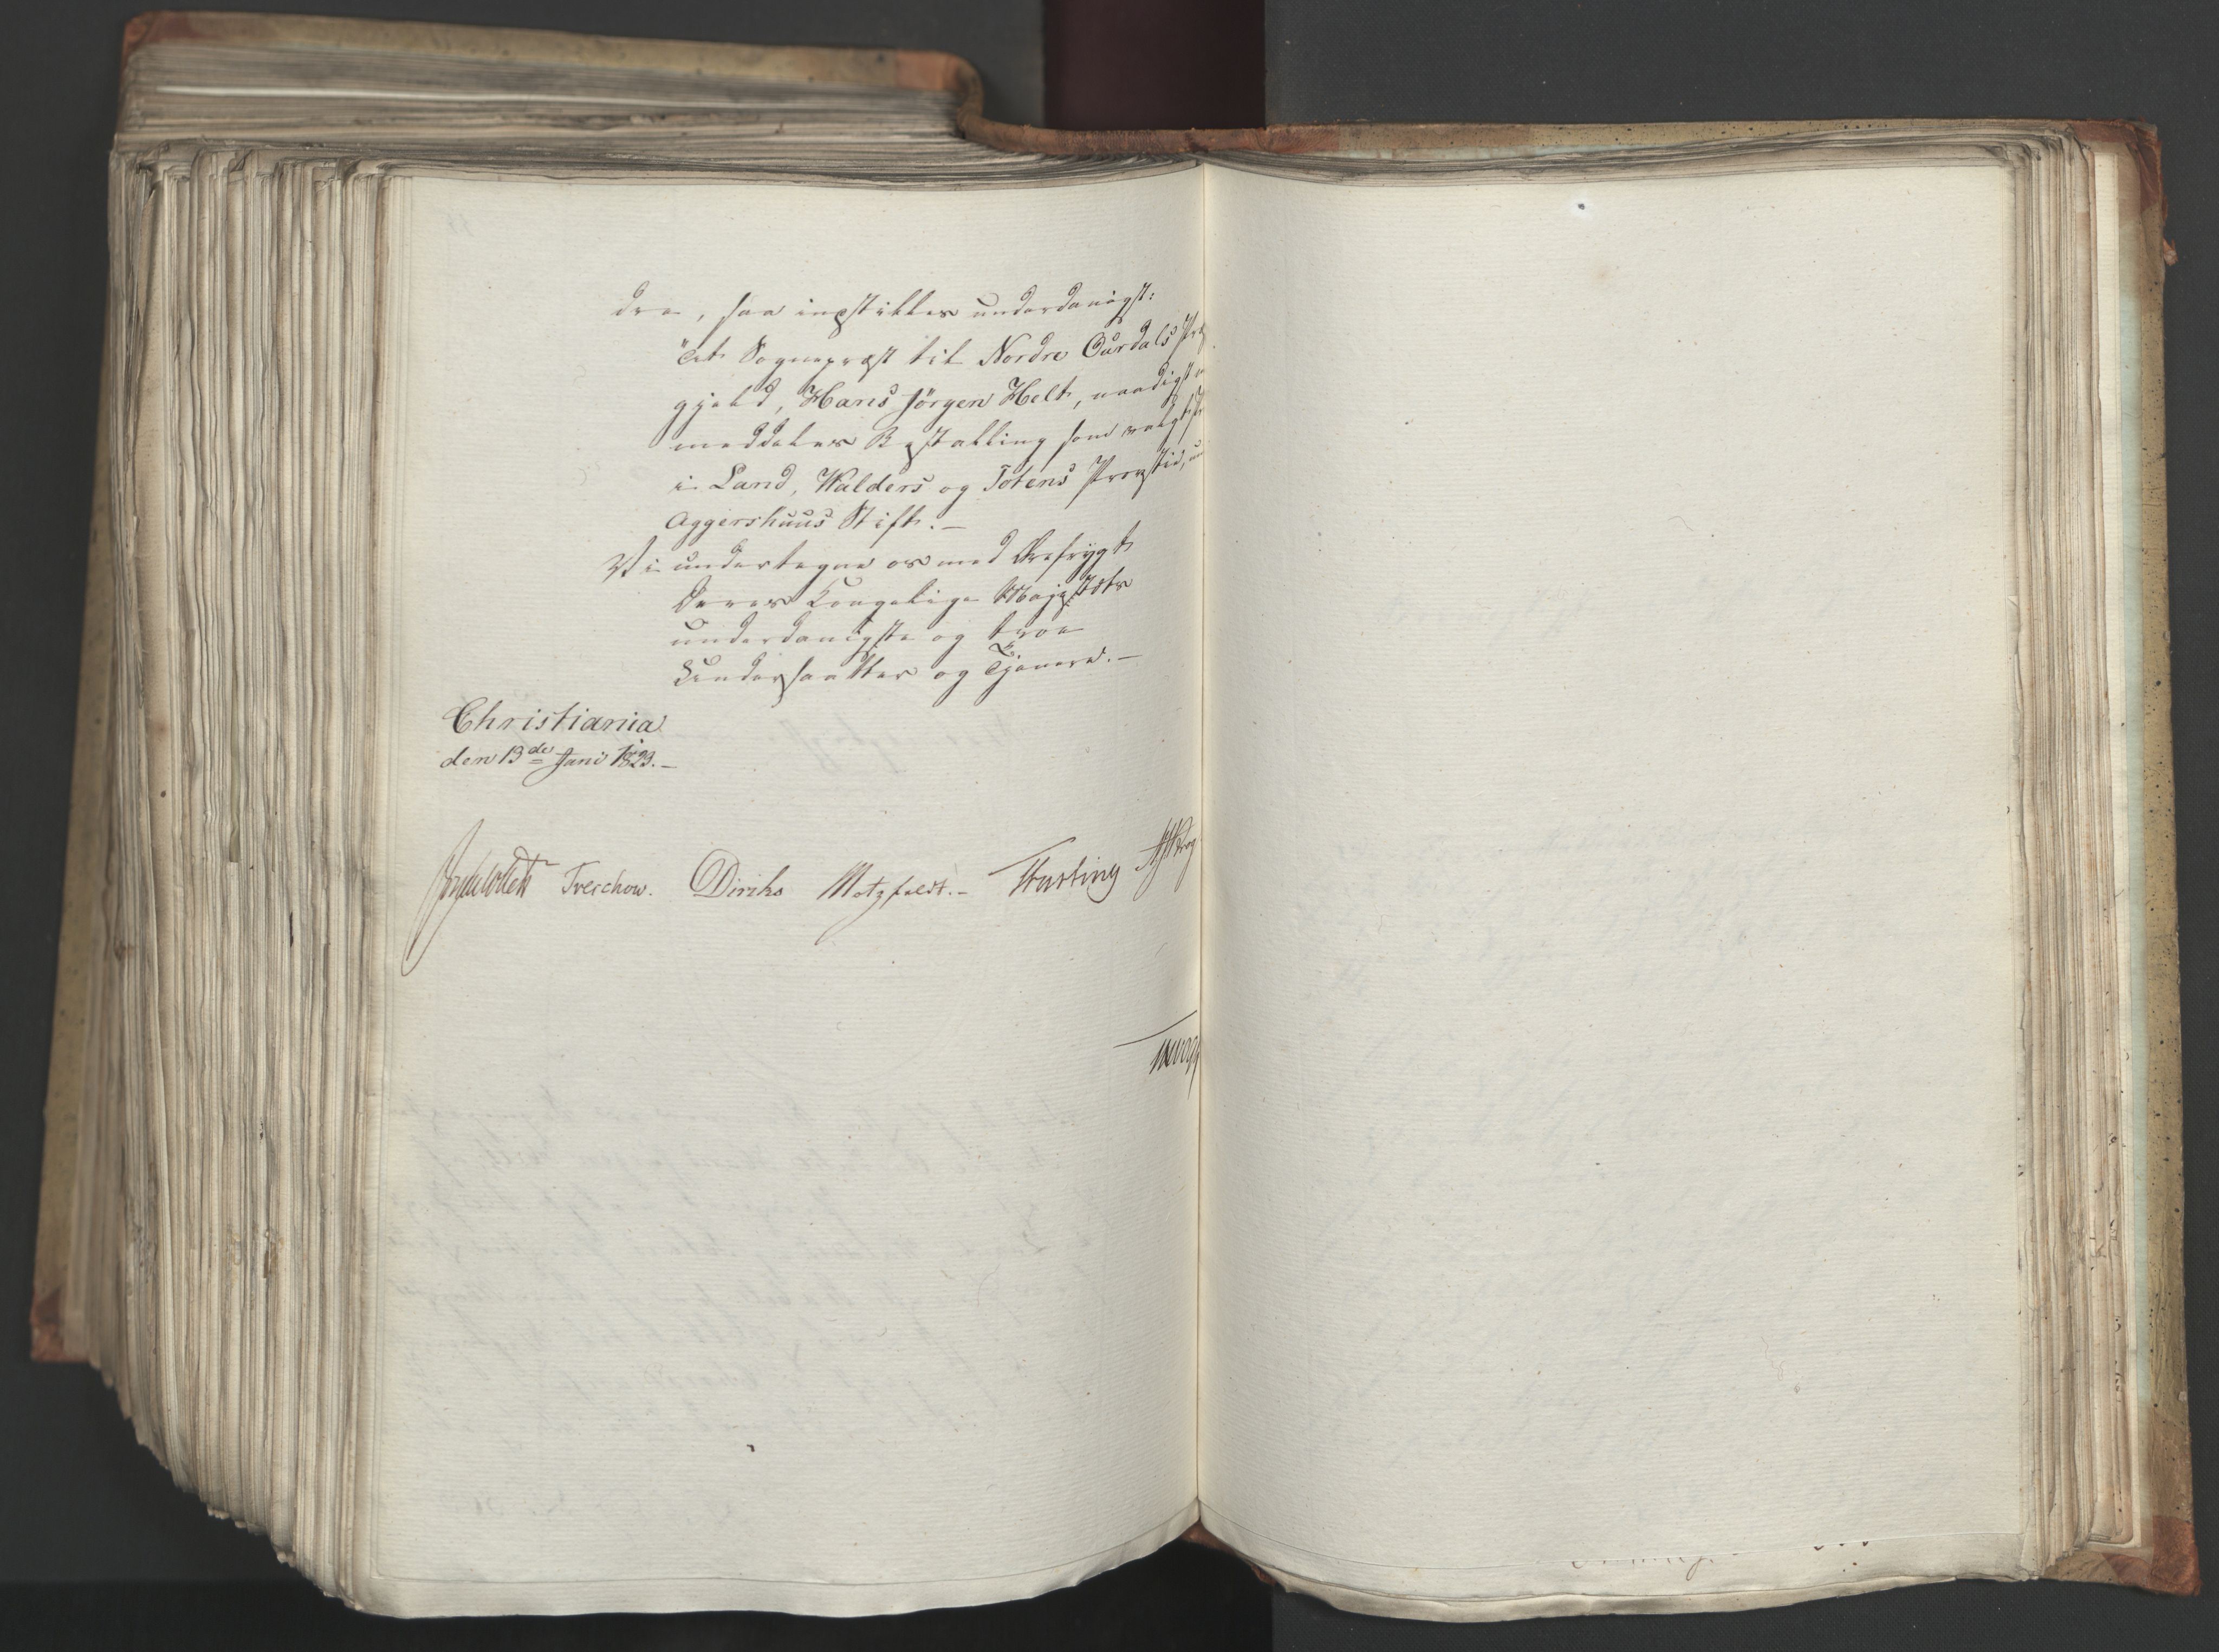 dre, saa indstilles underdanigst:
"at Sognepræst til Nordre Ourdals Præ
gjeld, Hans Jörgen Helt, naadigst
meddeles Bestalling som valgt
i Land, Walders og Totens Provstie,
Aggershuus Stift. —
Vi undertegne os med Ærefrygt
Deres Kongelige Majestæts
underdanigste og troe
Undersaatter og Tjenere. —
Christiania
den 13de Juni 1823. —
Treschow. Diriks Motzfeldt. — Fasting